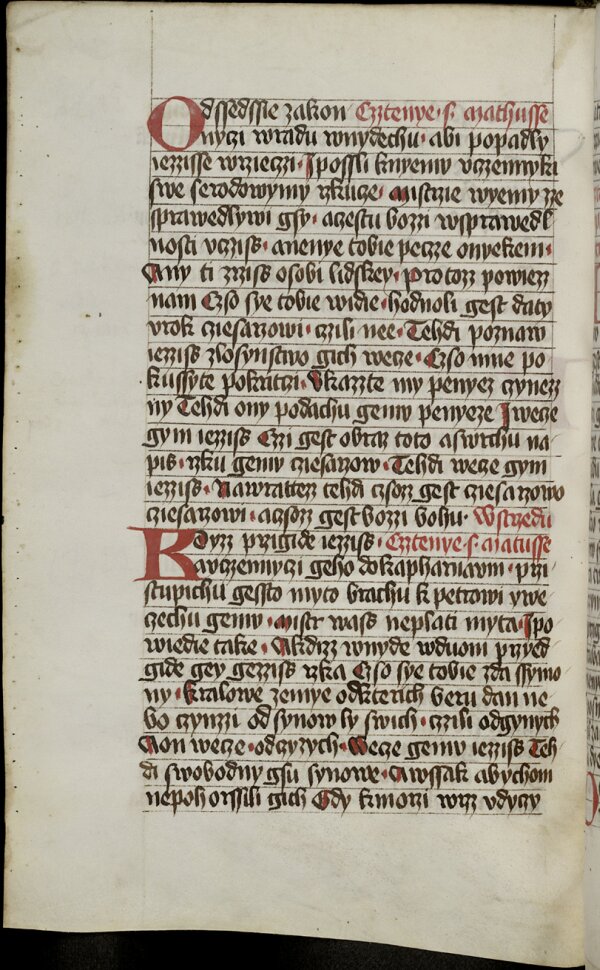 Odssedssie zakon Cztenye · s · mathusse
Onyczi wradu wnydechu · abi popadly
iezisse wrzieczi · I possli knyemv vczennyki
swe serodowymy rzkucze · mistrzie wyemy ze
sprawedlywi gsy · aczestu bozzi wsprawedl
nosti vcziss · anenye tobie pecze onyekem ·
Any ti zrziss osobi lidskey · Protozz powiezz
nam Czso sye tobie widie · hodnoli gest daty
vrok cziesarzowi · czili nee · Tehdi poznaw
iezziss zlosynstwo gich wecze · Czso mne po
kussyte pokritczi · Vkazzte my penyez czynezz
ny Tehdi ony podachu gemv penyeze I wecze
gym iezziss Czi gest obraz toto aswrchu na
pis · rzku gemv cziesarzow · Tehdi wecze gym
iezziss · Nawrattez tehdi czsozz gest cziesarzowo
cziesarzowi · aczsozz gest bozzi bohu · Wstrzedu
Kdyzz przigide iezziss · Cztenye · s · Matusse
avczennyczi geho do kapharnavm · przi
stupichu gessto myto brachu k petrowi ywe
czechu gemv · mistr wass neplati myta · I po
wiedie take · Akdizz wnyde wduom przyed
gide gey gezziss rzka Czso sye tobie zda ssymo
ny · kralowe zemye odkterich beru dan ne
bo czynzzi od synow ly swich · czili odgynych
Aon wecze · odczyzych · Wecze gemv iezziss Teh
di swobodny gsu synowe · Awssak abychom
nepohorssili gich Gdy kmorzi wrzz vdyczy